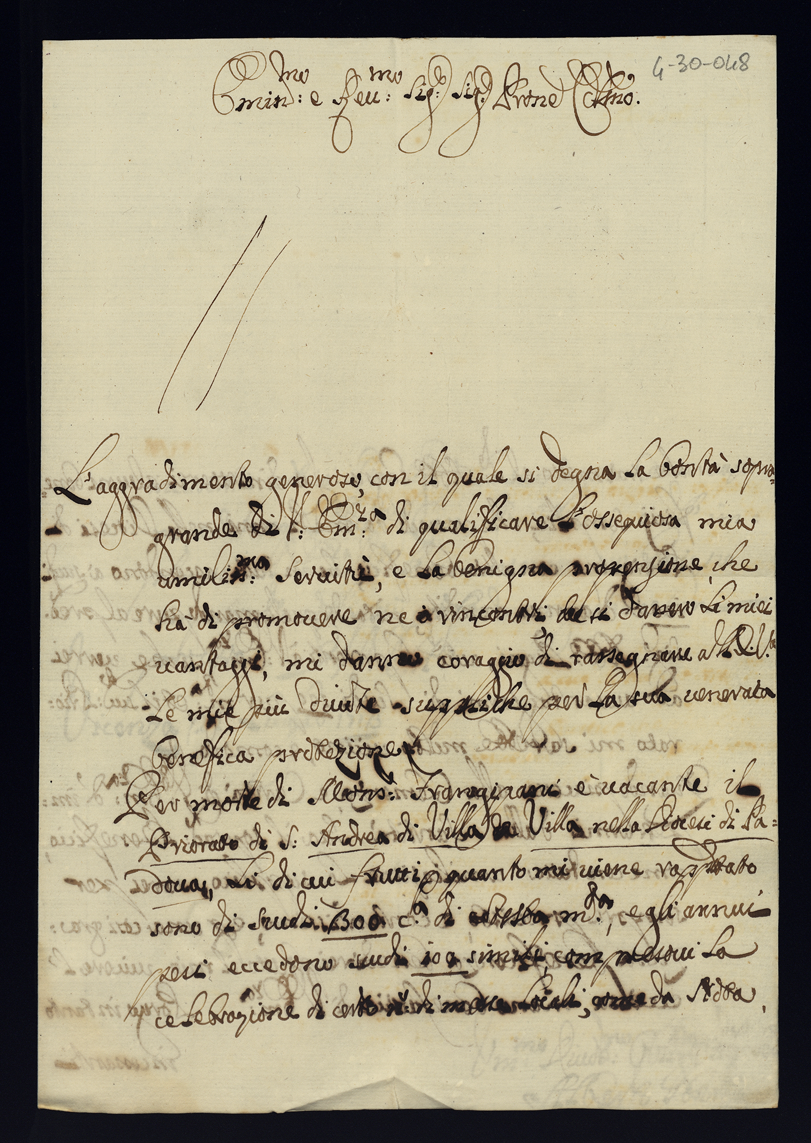 4-30-048
Emin:mo e Reu:mo Sig:r Sig:r Prone Colmo.
L'aggradimento generoso, con il quale si degna la bontà sopra
grande di V: Em:za di qualificare l'ossequiosa mia
umiliss:ma seruitù, e la benigna propensione, che
hà di promouere ne i rincontri li miei
uantaggi, mi danno coraggio di rassegnare all'E. V.ra
le mie più diuote suppliche per la sua venerata
benefica protezione.
Per morte di Mons:r Frangipani è uacante il
Priorato di S: Andrea di Villa da Villa nella Diocesi di Pa=
doua, li di cui frutti, p quanto mi uiene rapp̃tato
sono di scudi 300 c.a di m.ta, e gli annui
pesi eccedono scudi 100 simili, compresoui la
celebrazione di certo n.o di messe locali, come da